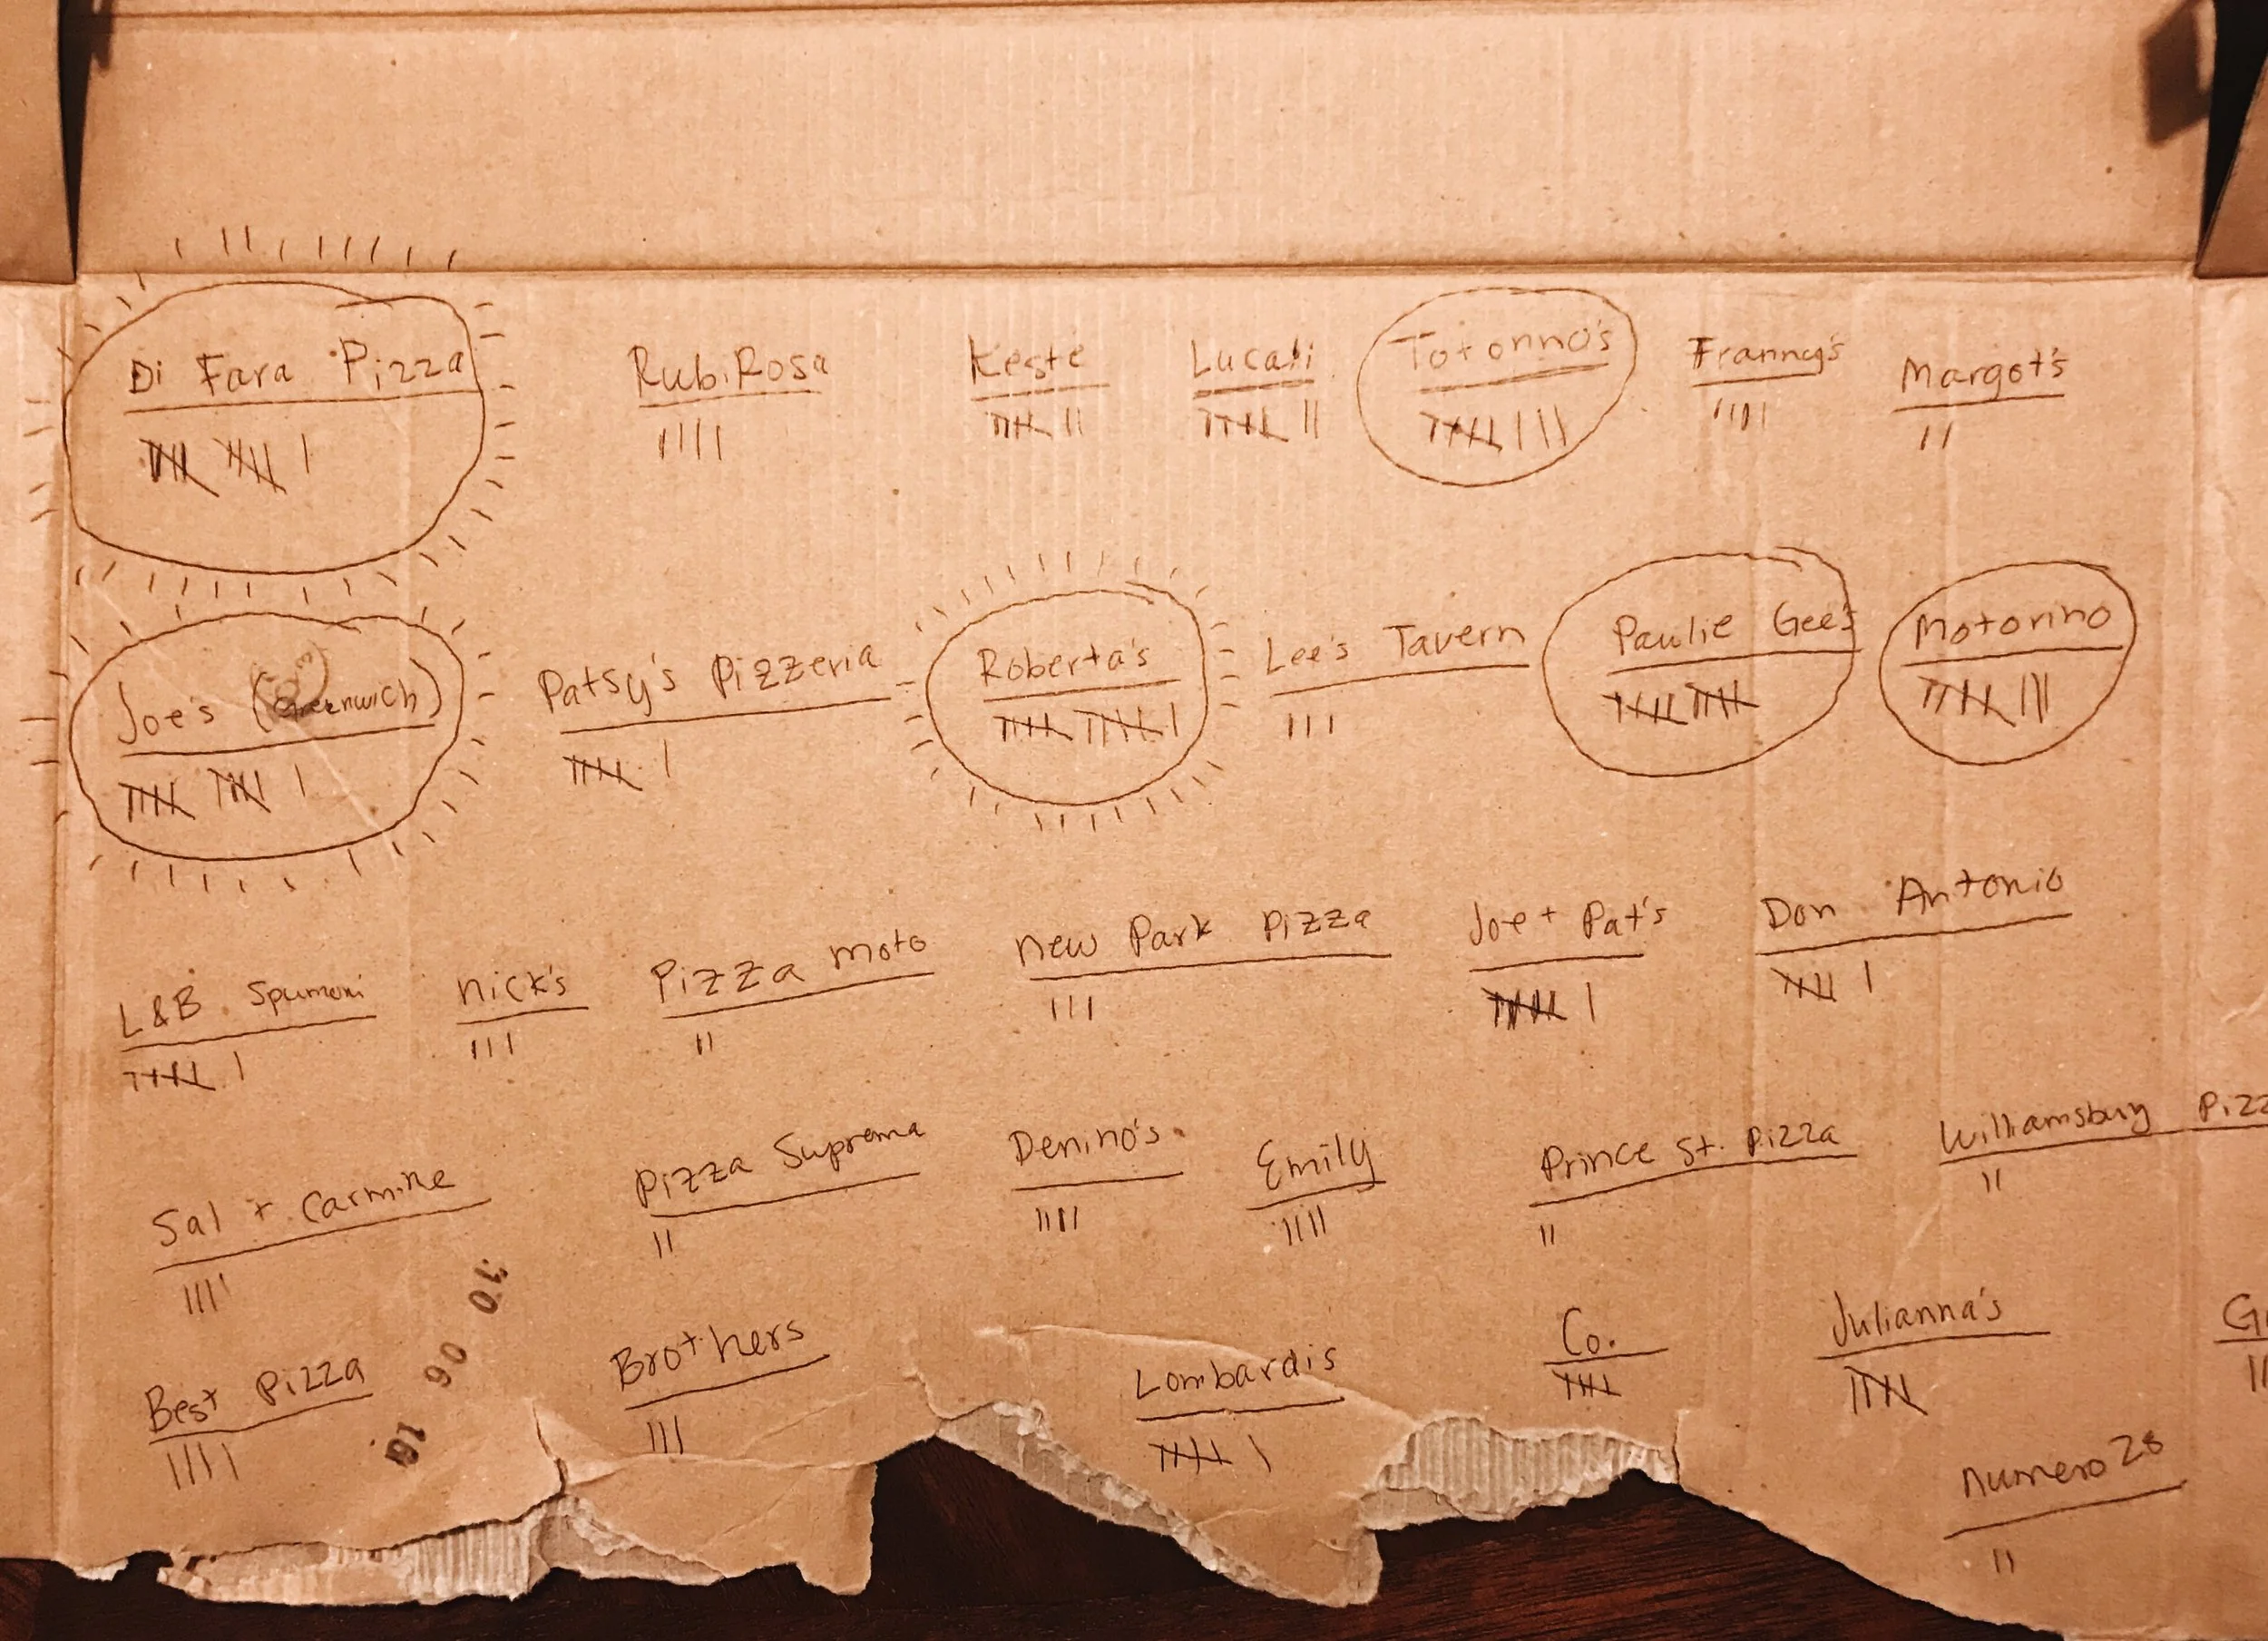 Di Fara Pizza RubiRosa Keste Lucali Totonno's Franny's Margot's
Joe's (Greenwich) Patsy's Pizzeria Roberta's Lee's Tavern Paulie Gee's Motorino
L&B Spumoni Nick's Pizza Moto New Park Pizza Joe + Pat's Don Antonio
Sal + Carmine Pizza Suprema Denino's Emily Prince St. Pizza Williamsburg Pizz
Best Pizza Brothers Lombardis Co. Julianna's
Numero 28
10 06 16